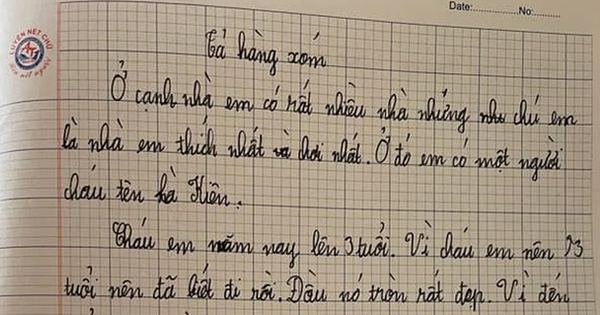 Date: No:
LUYỆN NÉT CHỮ
Tả hàng xóm
Ở cạnh nhà em có rất nhiều nhà nhưng như chú em
là nhà em thích nhất và chơi nhất. Ở đó em có một người
cháu tên là Kiên.
Cháu em năm nay lên 3 tuổi. Vì cháu em nên 3
tuổi nên đã biết đi rồi. Đầu nó tròn rất đẹp. Vì đến